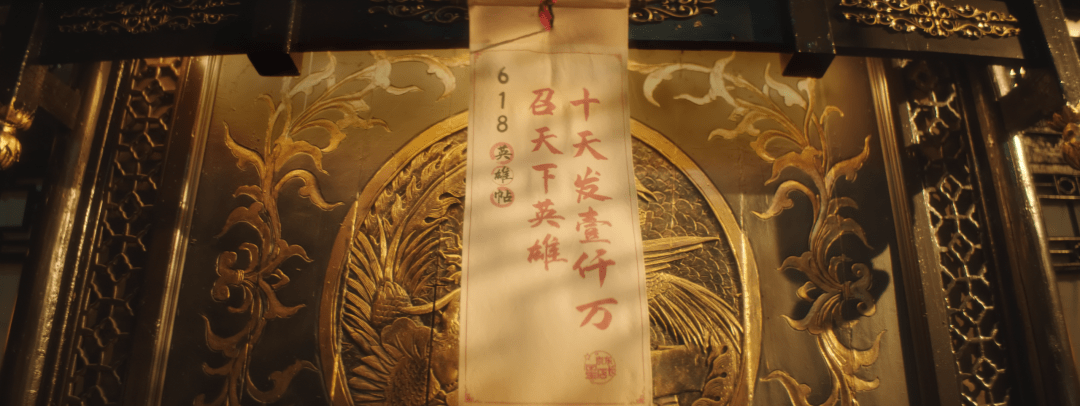 十天发壹仟万
召天下英雄
618英雄帖